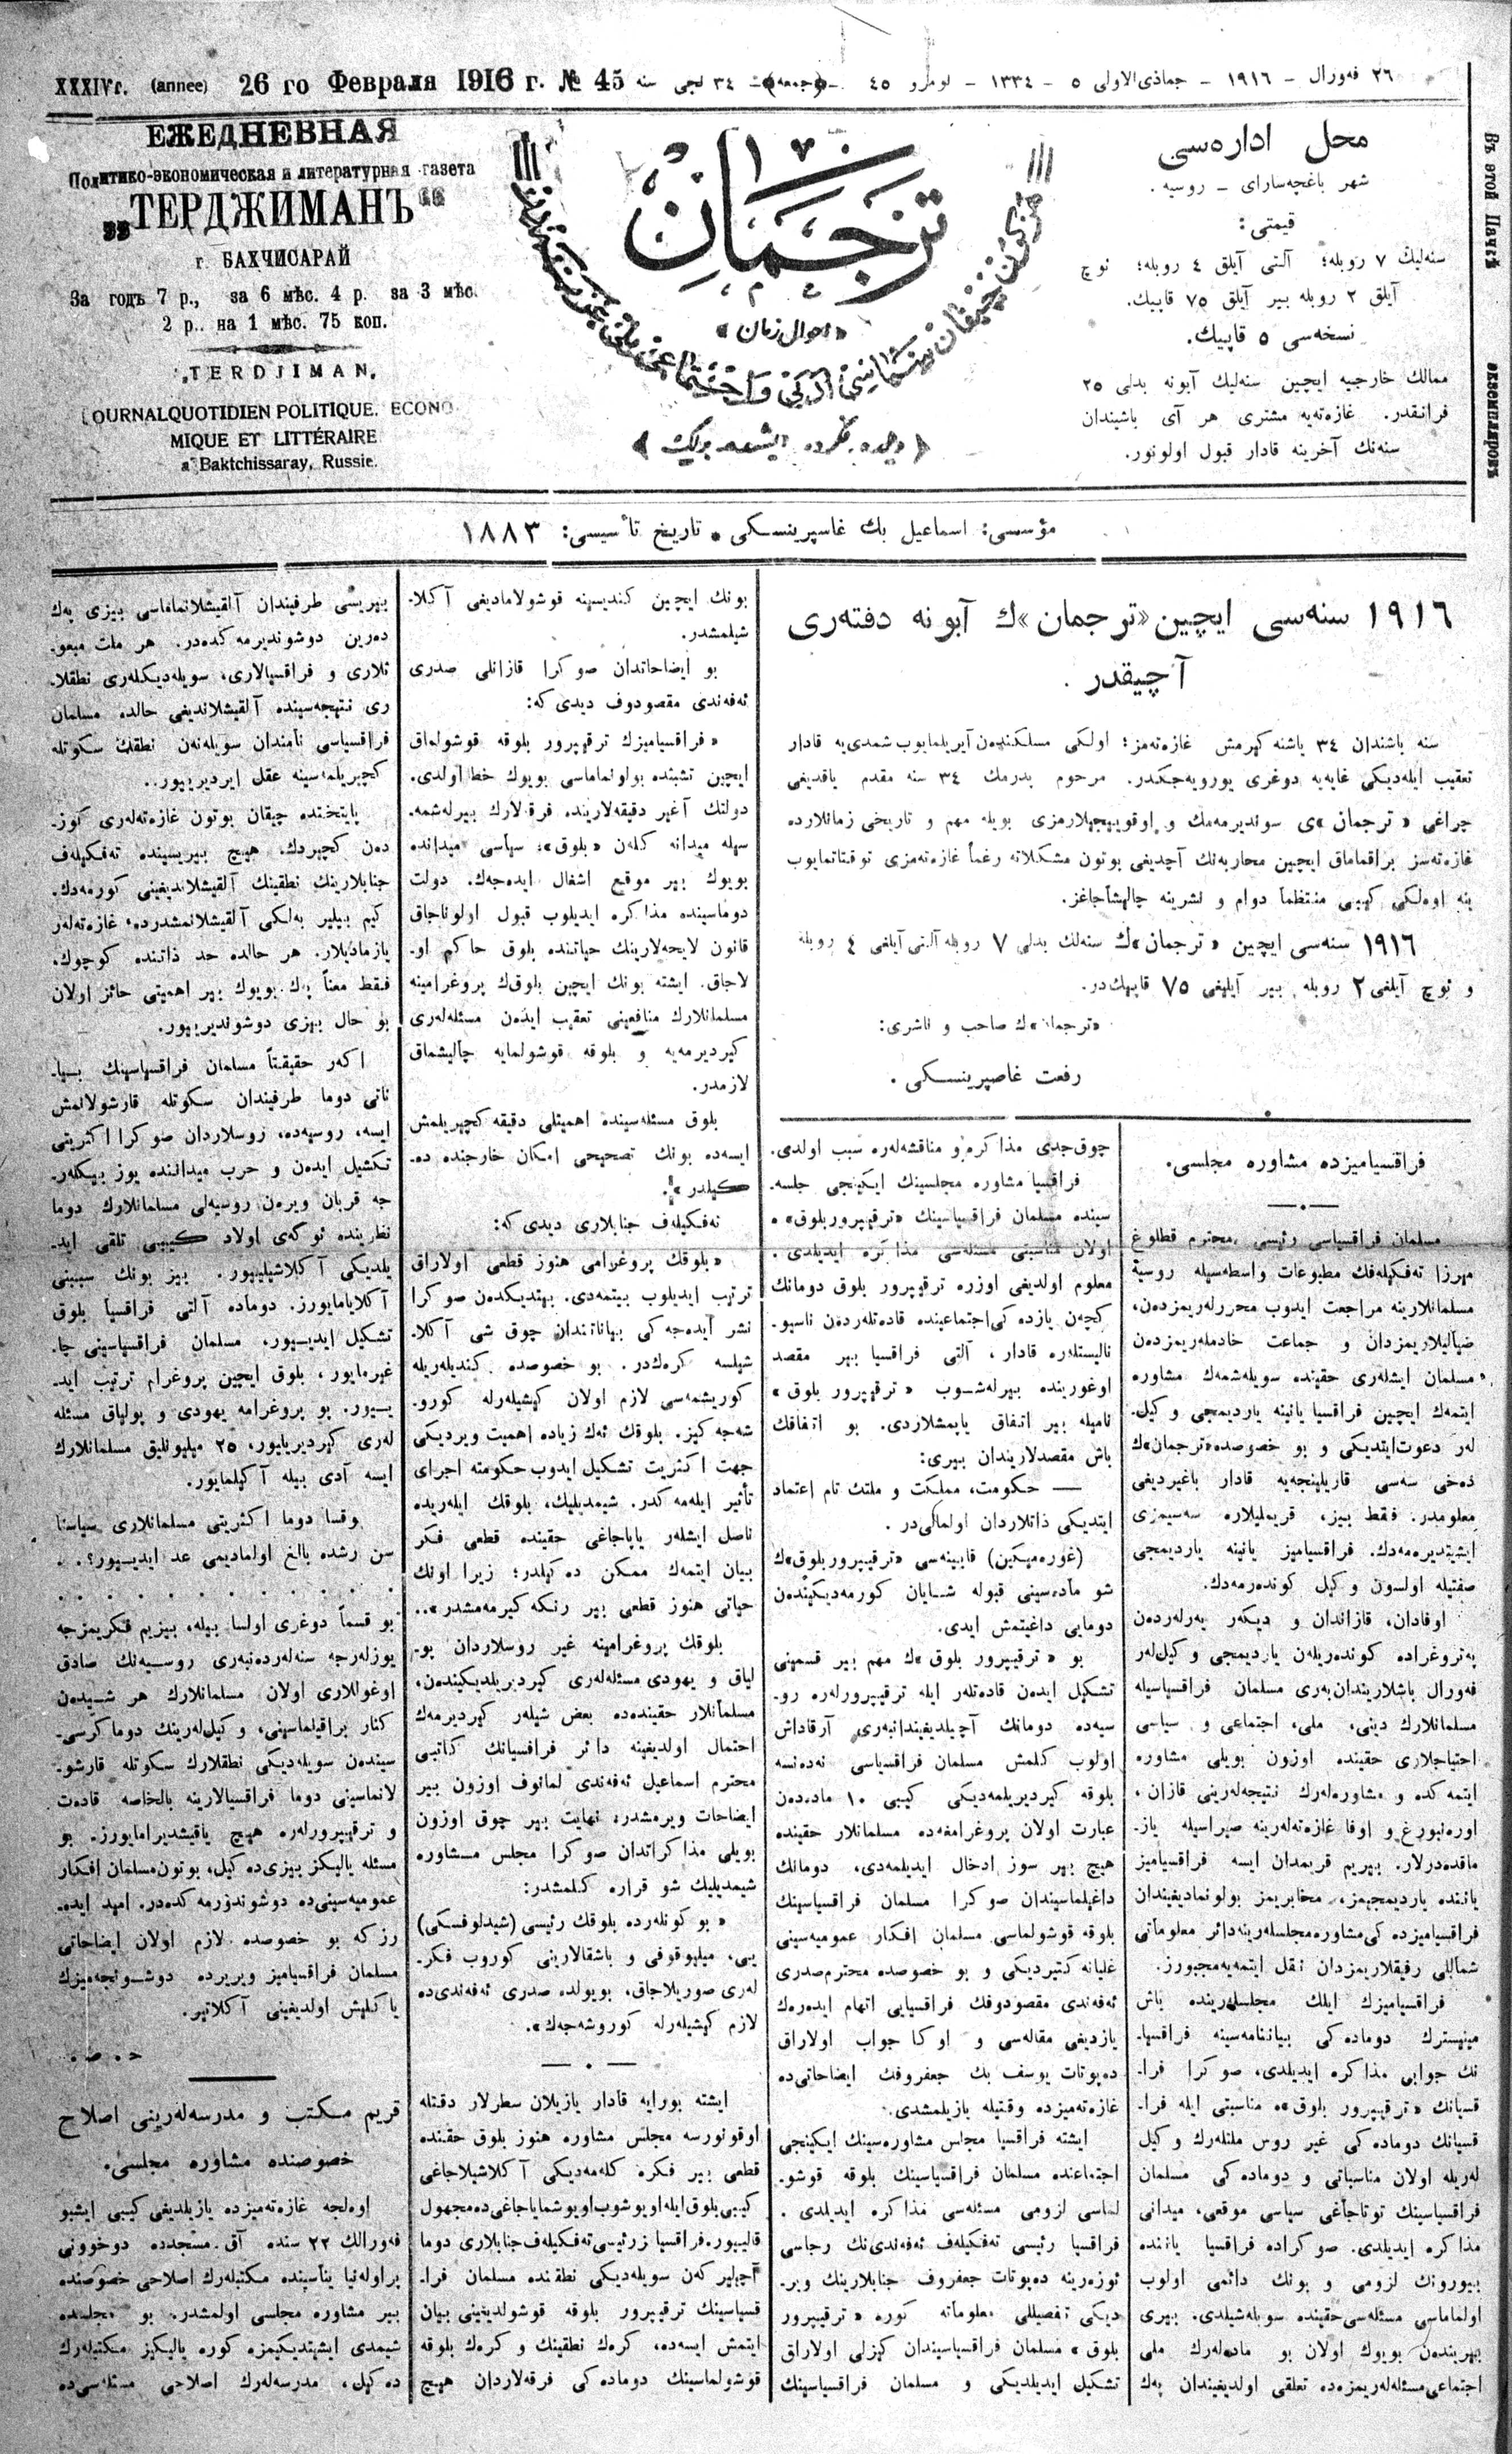 XXXIVг. (annee) 26 го Февраля 1916 г. № 45 سنه ٣٤ لجی ـ﴿جمعه﴾ـ
٢٦ فەورال – ١٩١٦ – جماذی‌الاولی ٥ – ١٣٣٤ – نومرو ٤٥
ЕЖЕДНЕВНАЯ
Политико-экономическая и литературная газета
„ТЕРДЖИМАНЪ“
г БАХЧИСАРАЙ
За годъ 7 р., за 6 мѣс. 4 р. за 3 мѣс.
2 р.. на 1 мѣс. 75 коп.
„TERDJIMAN„
JOURNALQUOTIDIEN POLITIQUE. ECONO
MIQUE ET LITTÉRAIRE
a Baktchissaray, Russie.
ترجمان
«احوال زمان»
محل اداره‌سی
شهر باغچه‌سارای – روسیه .
قیمتی:
سنه‌لیك ٧ روبله؛ آلتی آیلق ٤ روبله؛ ئوچ
آیلق ٢ روبله بیر آیلق ٧٥ قاپیك.
نسخه‌سی ٥ قاپیك.
ممالك خارجیه ایچین سنه‌لیك آبونه بدلی ٢٥
فرانقدر. غازەتەیه مشتری هر آی باشیندان
سنه‌نك آخرینه قادار قبول اولونور.
Въ этой Пачкѣ экземпляровъ
مؤسسی: اسماعیل بك غاسپرینسکی * تاریخ تأسیسی: ١٨٨٣
١٩١٦ سنه‌سی ایچین «ترجمان»ك آبونه دفتەری
آچیقدر .
سنه باشندان ٣٤ یاشنه کیرمش غازەتەمز؛ اولکی مسلکندەن آیریلمایوب شمدی‌یه قادار
تعقیب ایلەدیکی غایەیه دوغری یورویەجکدر. مرحوم پدرمك ٣٤ سنه مقدم یاقدیغی
چراغی «ترجمان»ی سوندیرمەمك و اوقوییجیلارمزی بویله مهم و تاریخی زمانلارده
غازەتەسز براقماماق ایچین محاربەنك آچدیغی بوتون مشکلاته رغماً غازەتەمزی توقتاتمایوب
ینه اوەلکی کیبی منتظماً دوام و نشرینه چالیشاجاغز.
١٩١٦ سنه‌سی ایچین «ترجمان»ك سنه‌لك بدلی ٧ روبله آلتی آیلغی ٤ روبله
و ئوچ آیلغی ٢ روبله بیر آیلیغی ٧٥ قاپیك‌در.
«ترجمان»ك صاحب و ناشری:
رفعت غاصپرینسکی .
فراقسیامیزده مشاوره مجلسی.
مسلمان فراقسیاسی رئیسی محترم قطلوغ
میرزا تەفکیلەفك مطبوعات واسطه‌سیله روسیة
مسلمانلارینه مراجعت ایدوب محررلەریمزدەن،
ضیالیلاریمزدان و جماعت خادملەریمزدەن
مسلمان ایشلەری حقینده سویلەشمەك مشاوره
ایتمەك ایچین فراقسیا یانینه یاردیمجی وکیل‌ـ
لەر دعوت ایتدیکی و بو خصوصده «ترجمان»ك
دەخی سەسی قاریلینجەیه قادار باغیردیغی
معلومدر. فقط بیز، قریملیلاره سەسیمزی
ایشیتدیرەمەدك. فراقسیامیز یانینه یاردیمجی
صفتیله اولسون وکیل کوندەرمەدك.
اوفادان، قازاندان و دیکەر یەرلەردەن
پەتروغراده کوندەریلەن یاردیمجی وکیل‌لەر
فەورال باشلاریندان‌بەری مسلمان فراقسیاسیله
مسلمانلارك دینی، ملی، اجتماعی و سیاسی
احتیاجلاری حقینده اوزون بویلی مشاوره
ایتمەکده و مشاورەلەرك نتیجەلەرینی قازان،
اورەنبورغ و اوفا غازەتەلەرینه صیراسیله یاز‌ـ
ماقدەدرلار. بیزیم قریمدان ایسه فراقسیامیز
یاننده یاردیمجیمز، مخابریمز بولونمادیغیندان
فراقسیامیزدەکی مشاوره مجلسلەرینه دائر معلوماتی
شماللی رفیقلاریمزدان نقل ایتمەیه مجبورز.
فراقسیامیزك ایلك مجلسلەرینده باش
مینیسترك دومادەکی بیاننامەسینه فراقسیا‌ـ
نك جوابی مذاکره ایدیلدی، صوکرا فرا‌ـ
قسیانك «ترقیپرور بلوق»ه مناسبتی ایله فرا‌ـ
قسیانك دومادەکی غیر روس ملتلەرك وکیل
لەریله اولان مناسباتی و دومادەکی مسلمان
فراقسیاسینك توتاجاغی سیاسی موقعی، میدانی
مذاکره ایدیلدی. صوکراده فراقسیا یاننده
بیورونك لزومی و بونك دائمی اولوب
اولماماسی مسئله‌سی حقینده سویلەشیلدی. بیری
بیریندەن بویوك اولان بو مادەلەرك ملی
اجتماعی مسئله‌لەریمزەده تعلقی اولدیغیندان پەك
چوق جدی مذاکره و مناقشەلەره سبب اولدی.
فراقسیا مشاوره مجلسینك ایکینجی جلسه‌ـ
سینده مسلمان فراقسیاسینك «ترقیپرور بلوق»ه
اولان مناسبتی مسئله‌سی مذاکره ایدیلدی.
معلوم اولدیغی اوزره ترقیپرور بلوق دومانك
کچەن یازدەکی اجتماعینده قادەتلەردەن ناسیو‌ـ
نالیستلەره قادار، آلتی فراقسیا بیر مقصد
اوغورینده بیرلەشوب «ترقیپرور بلوق»
نامیله بیر اتفاق یاپمشلاردی. بو اتفاقك
باش مقصدلاریندان بیری:
— حکومت، مملکت و ملتك تام اعتماد
ایتدیکی ذاتلاردان اولمالی‌در .
(غورەمیکین) قابینه‌سی «ترقیپرور بلوق»ك
شو مادەسینی قبوله شایان کورمەدیکیندەن
دومایی داغیتمش ایدی.
بو «ترقیپرور بلوق»ك مهم بیر قسمینی
تشکیل ایدەن قادەتلەر ایله ترقیپرورلەره رو‌ـ
سیەده دومانك آچیلدیغیندانبەری آرقاداش
اولوب کلمش مسلمان فراقسیاسی نەدەنسه
بلوقه کیردیریلمەدیکی کیبی ١٠ مادەدەن
عبارت اولان پروغرامەده مسلمانلار حقینده
هیچ بیر سوز ادخال ایدیلمەدی. دومانك
داغیلماسیندان صوکرا مسلمان فراقسیاسینك
بلوقه قوشولماسی مسلمان افکار عمومیه‌سینی
غلیانه کتیردیکی و بو خصوصده محترم صدری
ئەفەندی مقصودوفك فراقسیایی اتهام ایدەرەك
یازدیغی مقاله‌سی و اوکا جواب اولاراق
دەپوتات یوسف بك جعفروفك ایضاحاتی‌ده
غازەتەمیزده وقتیله یازیلمشدی.
ایشته فراقسیا مجلس مشاوره‌سینك ایکینجی
اجتماعنده مسلمان فراقسیاسینك بلوقه قوشو‌ـ
لماسی لزومی مسئله‌سی مذاکره ایدیلدی .
فراقسیا رئیسی تەفکیلەف ئەفەندی‌نك رجاسی
ئوزەرینه دەپوتات جعفروف جنابلارینك ویر‌ـ
دیکی تفصیللی معلوماته کوره «ترقیپرور
بلوق» مسلمان فراقسیاسیندان کیزلی اولاراق
تشکیل ایدیلدیکی و مسلمان فراقسیاسینك
بونك ایچین کندیسینه قوشولامادیغی آکلا‌ـ
شیلمشدر.
بو ایضاحاتدان صوکرا قازانلی صدری
ئەفەندی مقصودوف دیدی‌که:
«فراقسیامیزك ترقیپرور بلوقه قوشولماق
ایچین تشبثده بولونماماسی بویوك خطا اولدی.
دولتك آغیر دقیقەلارینده فرقەلارك بیرلەشمه‌ـ
سیله میدانه کلەن «بلوق»، سیاسی میدانده
بویوك بیر موقع اشغال ایدەجەك. دولت
دوماسینده مذاکره ایدیلوب قبول اولوناجاق
قانون لایحەلارینك حیاتنده بلوق حاکم او‌ـ
لاجاق. ایشته بونك ایچین بلوق‌ك پروغرامینه
مسلمانلارك منافعینی تعقیب ایدەن مسئله‌لەری
کیردیرمەیه و بلوقه قوشولمایه چالیشماق
لازمدر.
بلوق مسئله‌سینده اهمیتلی دقیقه کچیریلمش
ایسەده بونك تصحیحی امکان خارجنده دە‌ـ
کیلدر».
تەفکیلەف جنابلاری دیدی‌که:
«بلوقك پروغرامی هنوز قطعی اولاراق
ترتیب ایدیلوب بیتمەدی. بیتدیکدەن صوکرا
نشر ایدەجەکی بیاناتندان چوق شی آکلا‌ـ
شیلسه کرەك‌در. بو خصوصده کندیلەریله
کوریشمه‌سی لازم اولان کیشیلەرله کورو‌ـ
شەجەکیز. بلوقك ئەك زیاده اهمیت ویردیکی
جهت اکثریت تشکیل ایدوب حکومته اجرای
تأثیر ایلەمەکدر. شیمدیلیك، بلوقك ایلەریده
ناصل ایشلەر یاپاجاغی حقینده قطعی فکر
بیان ایتمەك ممکن دەکیلدر؛ زیرا اونك
حیاتی هنوز قطعی بیر رنکه کیرمەمشدر»..
بلوقك پروغرامینه غیر روسلاردان پو‌ـ
لیاق و یهودی مسئله‌لەری کیردیریلدیکیندەن،
مسلمانلار حقیندەده بعض شیلەر کیردیرمەك
احتمال اولدیغینه دائر فراقسیانك کاتبی
محترم اسماعیل ئەفەندی لمانوف اوزون بیر
ایضاحات ویرمشدر؛ نهایت بیر چوق اوزون
بویلی مذاکراتدان صوکرا مجلس مشاوره
شیمدیلیك شو قراره کلمشدر:
«بو کونلەرده بلوقك رئیسی (شیدلوفسکی)
یی، میلیوقوفی و باشقالارینی کوروب فکر‌ـ
لەری صوریلاجاق، بو یولده صدری ئەفەندی‌ده
لازم کیشیلەرله کوروشەجەك».
— • —
ایشته بورایه قادار یازیلان سطرلار دقتله
اوقونورسه مجلس مشاوره هنوز بلوق حقنده
قطعی بیر فکره کلەمەدیکی آکلاشیلاجاغی
کیبی بلوق ایله اویوشوب اویوشمایاجاغی‌ده مجهول
قالییور. فراقسیا رئیسی تەفکیلەف جنابلاری دوما
آچیلیرکەن سویلەدیکی نطقنده مسلمان فرا‌ـ
قسیاسینك ترقیپرور بلوقه قوشولدیغینی بیان
ایتمش ایسەده، کرەك نطقینك و کرەك بلوقه
قوشولماسینك دومادەکی فرقەلاردان هیچ
بیریسی طرفیندان آلقیشلانماماسی بیزی پەك
دەرین دوشوندیرمەکدەدر. هر ملت مبعو‌ـ
ثلاری و فراقسیالاری، سویلەدیکلەری نطقلا‌ـ
ری نتیجه‌سینده آلقیشلاندیغی حالده مسلمان
فراقسیاسی نامندان سویلەنەن نطقك سکوتله
کچیریلمه‌سینه عقل ایردیریپیور..
پایتختده چیقان بوتون غازەتەلەری کوز‌ـ
دەن کچیردك. هیچ بیریسینده تەفکیلەف
جنابلارینك نطقینك آلقیشلاندیغینی کورمەدك.
کیم بیلیر بەلکی آلقیشلانمشدرده، غازەتەلەر
یازمادیلار. هر حالده حد ذاتنده کوچوك،
فقط معناً پك بویوك بیر اهمیتی حائز اولان
بو حال بیزی دوشوندیریپور.
اکەر حقیقتاً مسلمان فراقسیاسینك بیا‌ـ
ناتی دوما طرفیندان سکوتله قارشولانمش
ایسه، روسیەده، روسلاردان صوکرا اکثریتی
تشکیل ایدەن و حرب میداننده یوز بیکلەر‌ـ
جه قربان ویرەن روسیەلی مسلمانلارك دوما
نظرینده ئوکەی اولاد کیبی تلقی اید‌ـ
یلدیکی آکلاشیلیپور. بیز بونك سببینی
آکلایامایورز. دوماده آلتی فراقسیا بلوق
تشکیل ایدیپور، مسلمان فراقسیاسینی چا‌ـ
غیرمایور، بلوق ایچین پروغرام ترتیب اید‌ـ
ییپور. بو پروغرامه یهودی و پولیاق مسئله
لەری کیردیریلیور، ٢٥ میلیونلیق مسلمانلارك
ایسه آدی بیله آکیلمایور.
یوقسا دوما اکثریتی مسلمانلاری سیاستا
سن رشده بالغ اولمادیمی عد ایدیپور؟. .
. . . . . . . . . .
بو قسماً دوغری اولسا بیله، بیزیم فکریمزجه
یوزلەرجه سنەلەردەنبەری روسیەنك صادق
اوغوللاری اولان مسلمانلارك هر شیدەن
کنار براقیلماسینی، وکیل‌لەرینك دوما کرسی‌ـ
سیندەن سویلەدیکی نطقلارك سکوتله قارشو‌ـ
لانماسینی دوما فراقسیالارینه بالخاصه قادەت
و ترقیپرورلەره هیچ یاقیشدیرامایورز. بو
مسئله یالیکز بیزی دەکیل، بوتون مسلمان افکار
عمومیه‌سینی‌ده دوشوندورمەکدەدر. امید ایدە‌ـ
رزکه بو خصوصده لازم اولان ایضاحاتی
مسلمان فراقسیامیز ویریرده دوشونجه‌میزك
یاکلیش اولدیغینی آکلاتیر.
ح. ص.
قریم مکتب و مدرسه‌لەرینی اصلاح
خصوصنده مشاوره مجلسی.
اوەلجه غازەتەمیزده یازیلدیغی کیبی ایشبو
فەورالك ٢٢ سنده آق مسجدده دوخوونی
پراولەنیا بناسینده مکتبلەرك اصلاحی خصوصنده
بیر مشاوره مجلسی اولمشدر. بو مجلسده
شیمدی ایشیتدیکیمزه کوره یالیکز مکتبلەرك
دەکیل، مدرسه‌لەرك اصلاحی مسئله‌سی‌ده